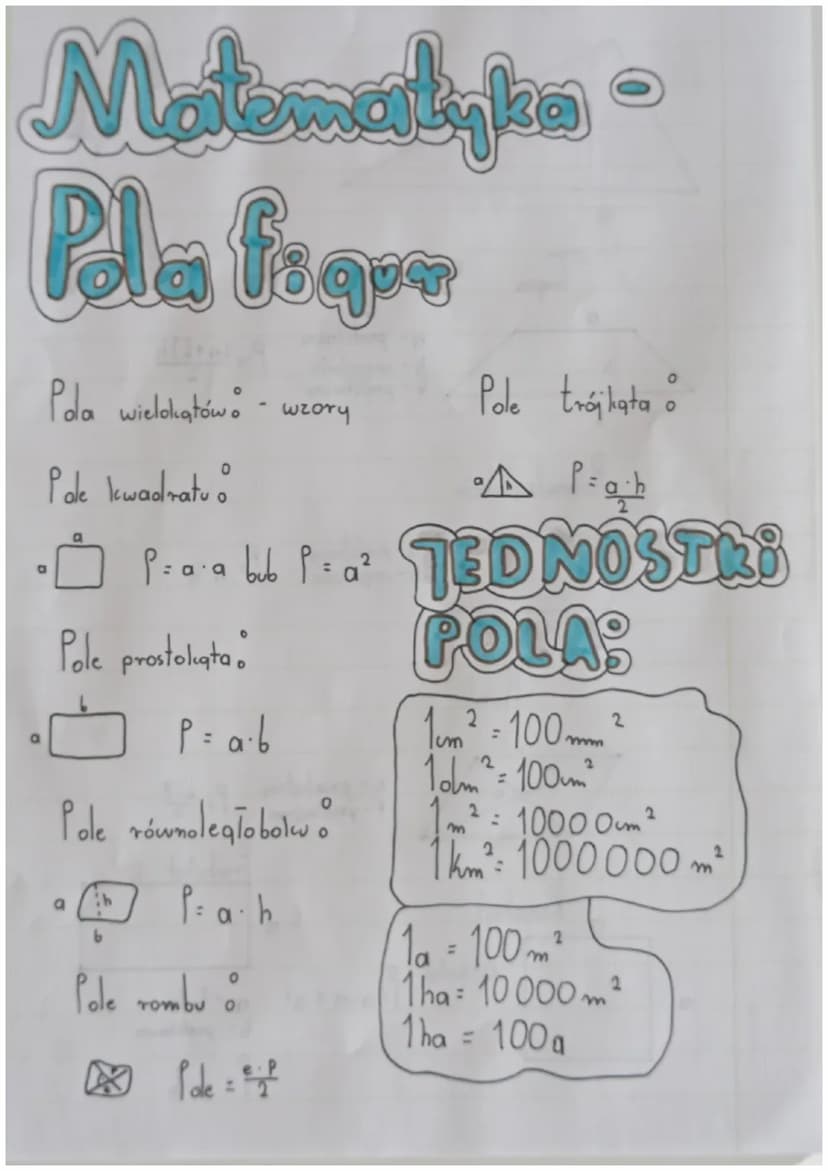 Matematyka -
Pola figur
Pola wielokątów: - wzory
Pole kwadratu:
a
a
P = a · a lub P = a²
Pole prostokąta:
b
a
P = a · b
Pole równoległoboku:
a
h
b
P = a · h
Pole rombu:
Pole = e · p / 2
Pole trójkąta:
a
h
P = a · h / 2
JEDNOSTKI
POLA:
1cm² = 100mm²
1dm² = 100cm²
1m² = 10000cm²
1km² = 1000000 m²
1a = 100m²
1ha = 10000m²
1ha = 100a